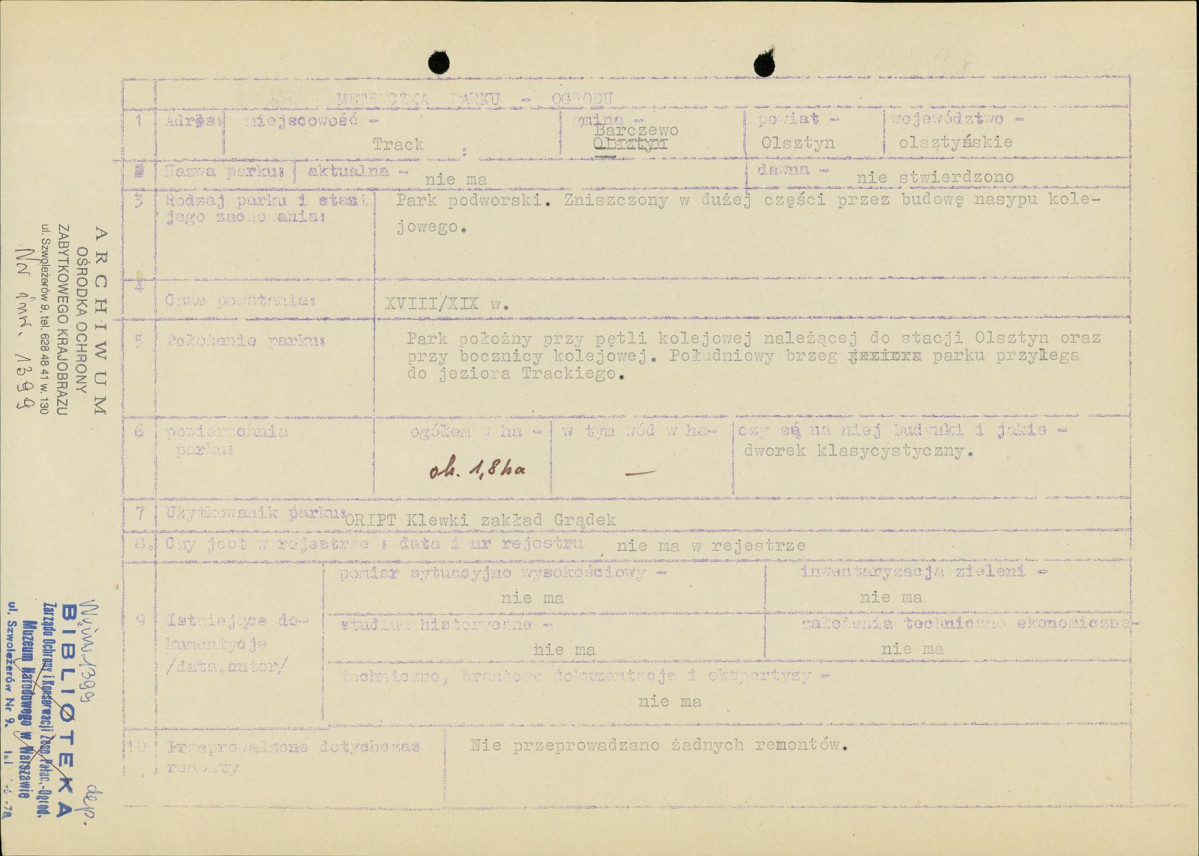 METRYCZKA PARKU - OGRODU
1 Adres: miejscowość - gmina - powiat - województwo -
Track : Barczewo Olsztyn Olsztyn olsztyńskie
Nazwa parku: aktualna - nie ma dawna - nie stwierdzono
3 Rodzaj parku i stan Park podworski. Zniszczony w dużej części przez budowę nasypu kole-
jego zachowania: jowego.
4 Czas powstania: XVIII/XIX w.
5 Położenie parku: Park położny przy pętli kolejowej należącej do stacji Olsztyn oraz
przy bocznicy kolejowej. Południowy brzeg jeziora parku przylega
do jeziora Trackiego.
6 powierzchnia ogółem w ha - w tym wód w ha- czy są na niej budynki i jakie -
parku: dworek klasycystyczny.
ok. 1,8 ha —
7 Użytkowanik parku: ORIPT Klewki zakład Grądek
8. Czy jest w rejestrze : data i nr rejestru nie ma w rejestrze
pomiar sytuacyjno wysokościowy - inwentaryzacja zieleni -
nie ma nie ma
9 Istniejąca do- studium historyczne - założenia techniczno ekonomiczne-
kumentacja nie ma nie ma
/data,autor/ techniczno, branżowa dokumentacja i ekspertyzy -
nie ma
10 Przeprowadzone dotychczas Nie przeprowadzano żadnych remontów.
remonty
ARCHIWUM
OŚRODKA OCHRONY
ZABYTKOWEGO KRAJOBRAZU
ul. Szwoleżerów 9, tel. 628 48 41 w. 130
Nr inw. 1399
Nr inw 1399 dep.
BIBLIOTEKA
Zarządu Ochrony i Konserwacji Zesp. Pałac.-Ogrod.
Muzeum Narodowego w Warszawie
ul. Szwoleżerów Nr 9.